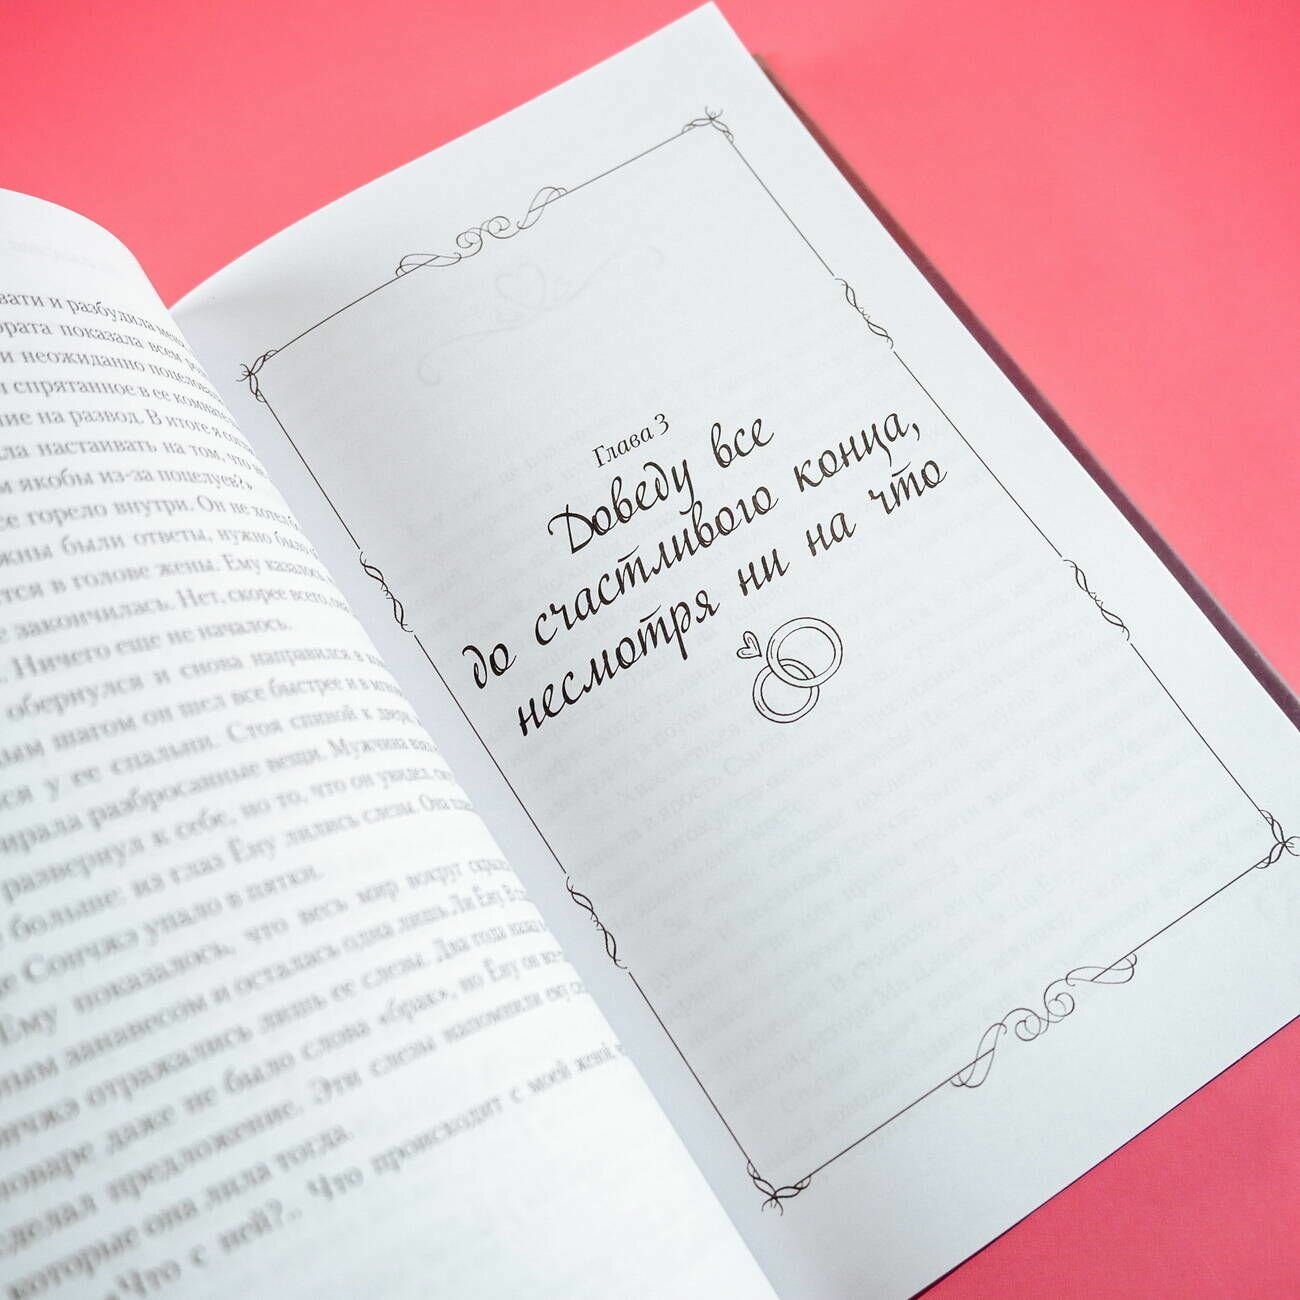 вати и разбудила меня
брата показала всем
и неожиданно поцеловал
спрятанное в ее комнате
ние на развод. В итоге я
ла настаивать на том, что
м якобы из-за поцелуев?»
се горело внутри. Он не хотел
жны были ответы, нужно было
ется в голове жены. Ему казалось,
е закончилась. Нет, скорее всего, она
Ничего еще не началось.
обернулся и снова направился в
ым шагом он шел все быстрее и в
ся у ее спальни. Стоя спиной к двери,
ирала разбросанные вещи. Мужчина
развернул к себе, но то, что он увидел,
больше: из глаз Ёну лились слезы. Она
це Сончжэ упало в пятки.
Ему показалось, что весь мир вокруг
ным занавесом и осталась одна лишь Ли Ёну. В
нчжэ отражались лишь ее слезы. Два года назад
ловаре даже не было слова «брак», но Ёну он
сделал предложение. Эти слезы напомнили ему
которые она лила тогда.
«Что с ней?.. Что происходит с моей женой,
Глава 3
Доведу все
до счастливого конца,
несмотря ни на что